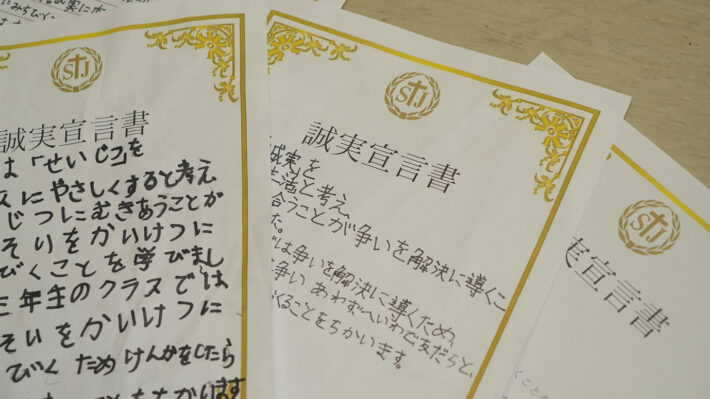 にみちびく
STJ
誠実宣言書
は「せいじつ」を
にやさしくすると考え
じつにむきあうことが
そいをかいけつに
びくことを学びまし
三年生のクラスでは
そいをかいけつに
びくためけんかをしたら
STJ
誠実宣言書
誠実を
生活と考え、
合うことが争いを解決に導くこ
た。
では争いを解決に導くため、
争い あわずへいわで友だちと、
くることをちかいます。
STJ
実宣言書